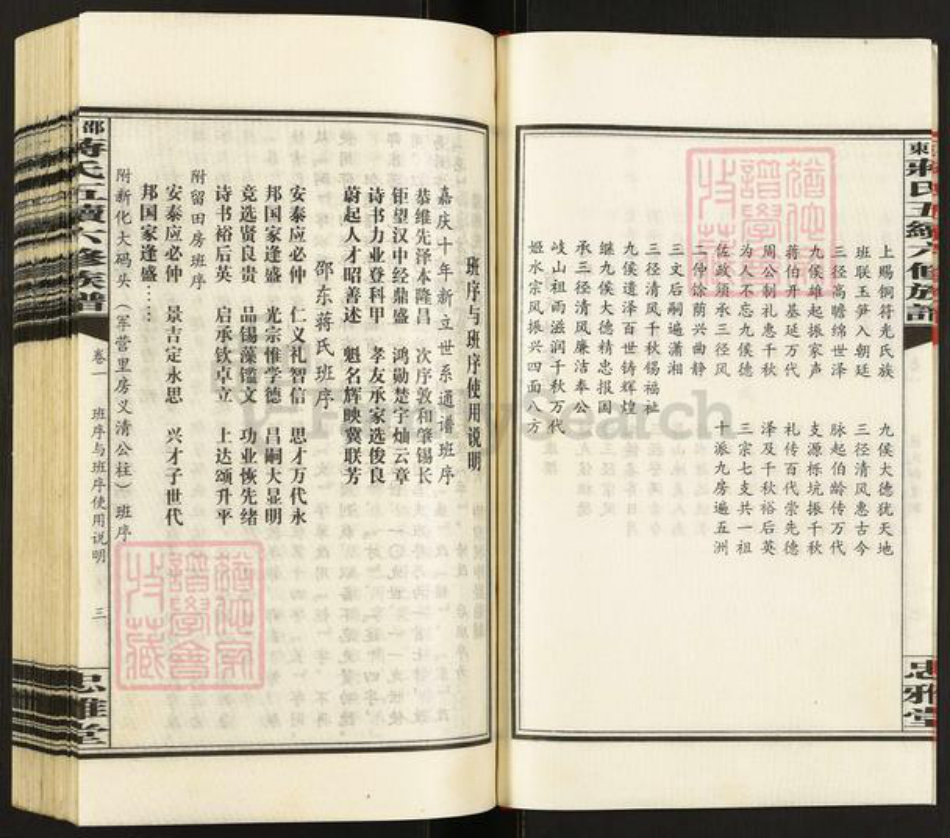 東蔣氏五續六修族譜
忠雅堂
上赐铜符光氏族　九侯大德犹天地
班联玉笋入朝廷　三径清风惠古今
三径高瞻绵世泽　脉起伯龄传万代
九侯雄起振家声　支源栎坑振千秋
蒋伯开基延万代　礼传百代崇先德
周公制礼惠千秋　泽及千秋裕后英
为人不忘九侯德　三宗七支共一祖
佐政须承三径风　十派九房遍五洲
二仲馀荫兴曲静
三文后嗣遍潇湘
三径清风千秋锡福祉
九侯遗泽百世铸辉煌
继九侯大德精忠报国
承三径清风廉洁奉公
岐山祖雨滋润千秋万代
姬水宗风振兴四面八方
班序与班序使用说明
嘉庆十年新立世系通谱班序
恭维先泽本隆昌　次序敦和肇锡长
钜望汉中经鼎盛　鸿勋楚宇灿云章
诗书力业登科甲　孝友承家选俊良
蔚起人才昭善述　魁名辉映冀联芳
邵东蒋氏班序
安泰应必仲　仁义礼智信　思才万代永
邦国家逢盛　光宗惟学德　昌嗣大显明
竞选贤良贵　品锡藻鑑文　功业恢先绪
诗书裕后英　启承钦卓立　上达颂升平
附留田房班序
安泰应必仲　景吉定永思　兴才子世代
邦国家逢盛……
附新化大码头（军营里房义清公柱）班序
邵蒋氏五續六修族譜
卷一　班序与班序使用说明　三
忠雅堂
FamilySearch